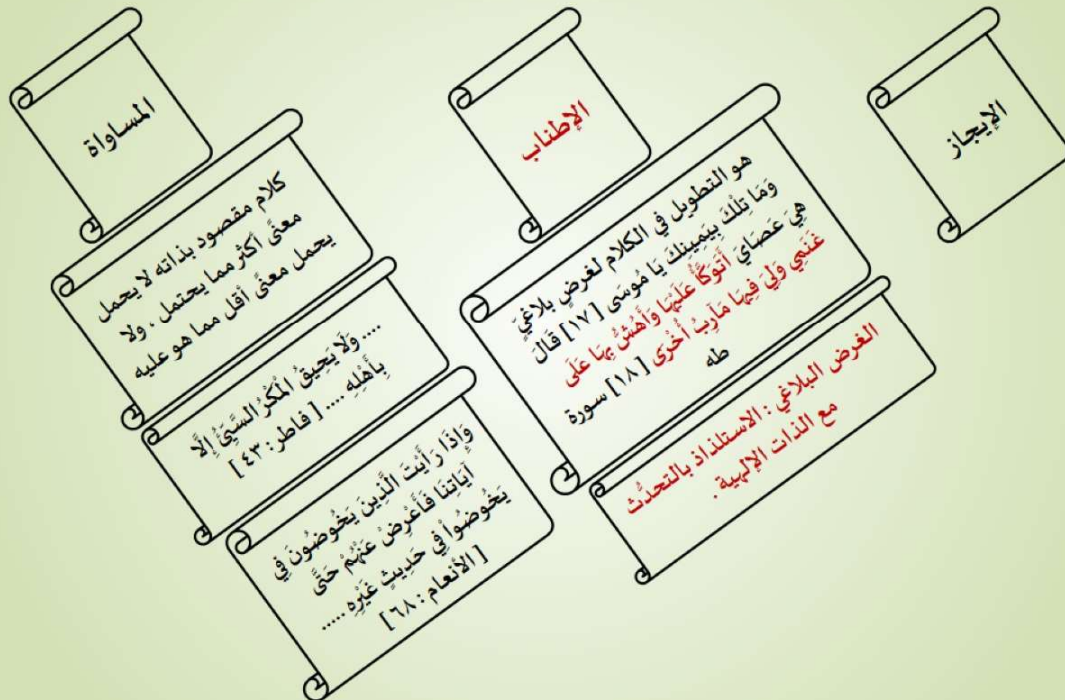 الإيجاز
الإطناب
هو التطويل في الكلام لغرضٍ بلاغيٍّ
وَمَا تِلْكَ بِيَمِينِكَ يَا مُوسَى [١٧] قَالَ
هِيَ عَصَايَ أَتَوَكَّأُ عَلَيْهَا وَأَهُشُّ بِهَا عَلَى
غَنَمِي وَلِيَ فِيهَا مَآرِبُ أُخْرَى [١٨] سورة
طه
الغرض البلاغي : الاستلذاذ بالتحدُّث
مع الذات الإلهية .
المساواة
كلام مقصود بذاته لا يحمل
معنًى أكثر مما يحتمل ، ولا
يحمل معنًى أقل مما هو عليه
.... وَلَا يَحِيقُ الْمَكْرُ السَّيِّئُ إِلَّا
بِأَهْلِهِ .... [ فاطر: ٤٣ ]
وَإِذَا رَأَيْتَ الَّذِينَ يَخُوضُونَ فِي
آيَاتِنَا فَأَعْرِضْ عَنْهُمْ حَتَّى
يَخُوضُواْ فِي حَدِيثٍ غَيْرِهِ .....
[ الأنعام : ٦٨ ]